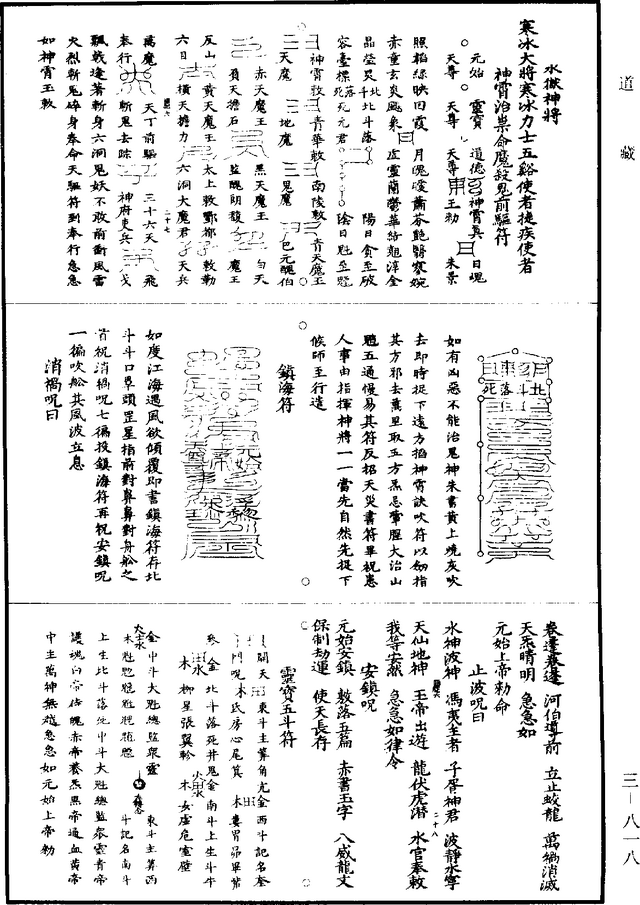 道藏
水獄神將
寒冰大將寒冰力士五谿使者捷疾使者
神霄治祟命魔殺鬼前驅符
元始 靈寶 道德 神霄真 日魂
天尊 天尊 天尊 王勑 朱景
照韜綠映回霞 月魄曖蕭芬艷翳寥婉
赤童玄炎飈象 虛靈蘭鬱華結翹淳金
晶熒炅 北斗落 陽日貪至破
容臺標 死死元君 陰日魁至
神霄敕 青華敕 南陵敕 青天魔王
天魔 地魔 鬼魔 巴元醜伯
赤天魔王 黑天魔王 白天
負天擔石 監醜朗馥 魔王
反山 黃天魔王 太上敕酆都 敕勒
六目 橫天擔力 六洞大魔君 天兵
萬魔 天丁前驅 三十六天 飛
奉行 斬鬼去踪 神府吏兵 戈
飄戟逢著斬身六洞鬼妖不敢前衝風雷
火烈斬鬼碎身奉命天驅符到奉行急急
如神霄玉敕
北斗落死
如有凶惡不能治鬼神朱書黃上燒灰吹
去即時捉下遠方掐神霄訣吹符以劍指
其方邪去萬里取五方炁忌葷腥大治山
魈五通慢易其符反招天災書符畢祝患
人事由指揮神將一一當先自然先捉下
候師至行遣
鎮海符
如度江海遇風欲傾覆即書鎮海符存北
斗斗口罩頭罡星指前對鼻鼻對舟舩之
首祝消禍呪七徧投鎮海符再祝安鎮呪
一徧吹舩其風波立息
消禍呪曰
卷逄卷逄 河伯導前 立止蛟龍 萬禍消滅
天炁晴明 急急如
元始上帝勑命
止波呪曰
水神波神 馮夷至者 子胥神君 波靜水寧
天仙地神 玉帝出遊 龍伏虎潛 水官奉敕
我等安然 急急如律令
安鎮呪
元始安鎮 敷落五篇 赤書玉字 八威龍文
保制劫運 使天長存
靈寶五斗符
東斗主筭角亢金西斗記名奎
氐房心尾箕 婁胃昴畢觜
參 金 北斗落死井鬼金南斗上生斗牛
木 柳星張翼軫 木女虛危室壁
金中斗大魁總監眾靈
東斗主筭西
斗記名南斗
上生北斗落死中斗大魁總監眾靈青帝
護魂白帝侍魄赤帝養炁黑帝通血黃帝
中主萬神無越急急如元始上帝勑
三-八一八